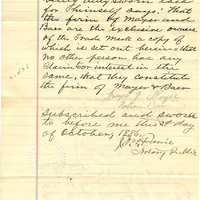 being duly sworn each
for himself says: That
the firm by Mayer and
Baer are the exclusive owners
of the Trade Mark a copy of
which is set out herein & that
no other person has any
Claim or interest in the
same, that they constitute
the firm of Mayer & Baer
Subscribed and sworn
to before me this day
of October, 1886.
Notary Public